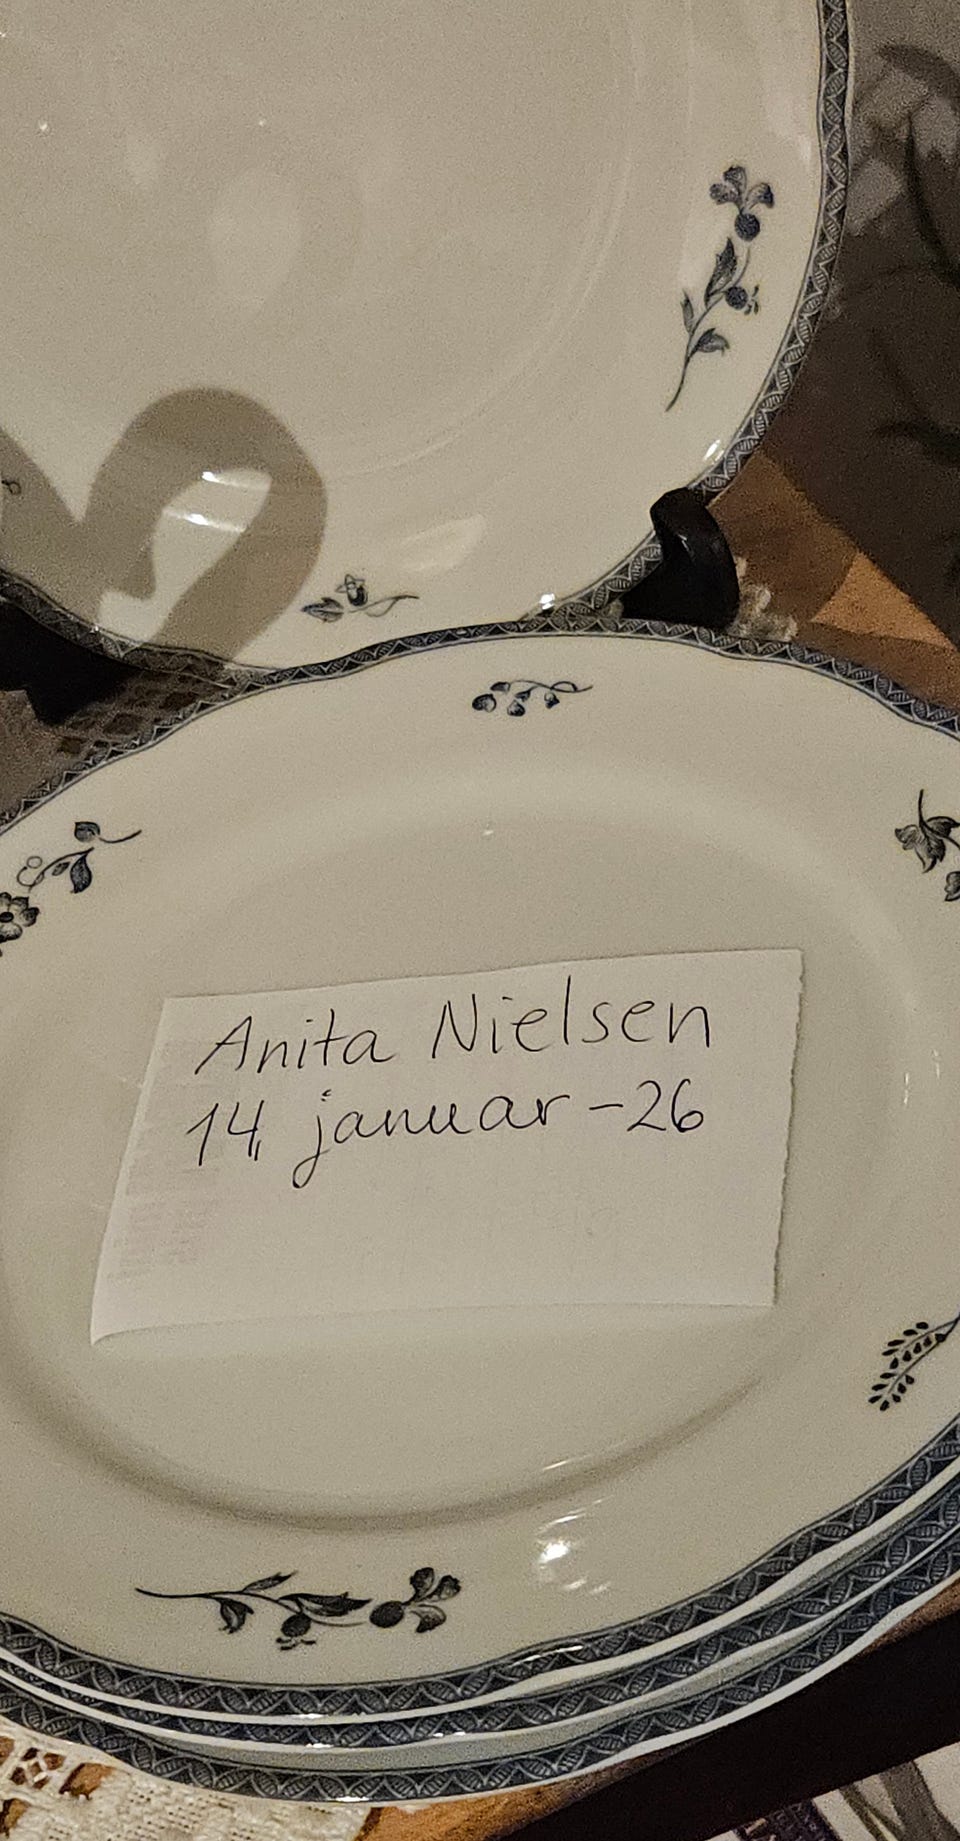 Anita Nielsen
14 januar-26